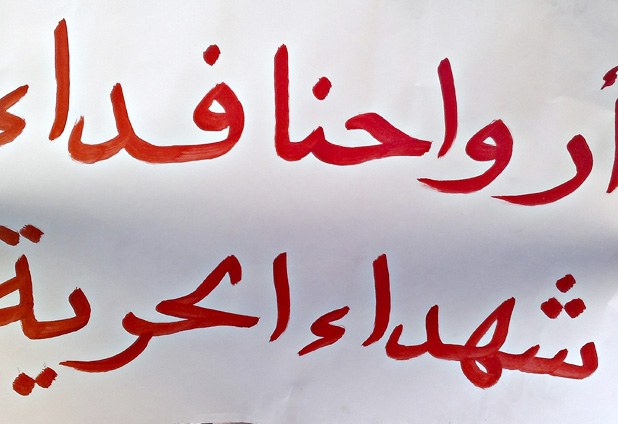 أرواحنا فداء
شهداء الحرية